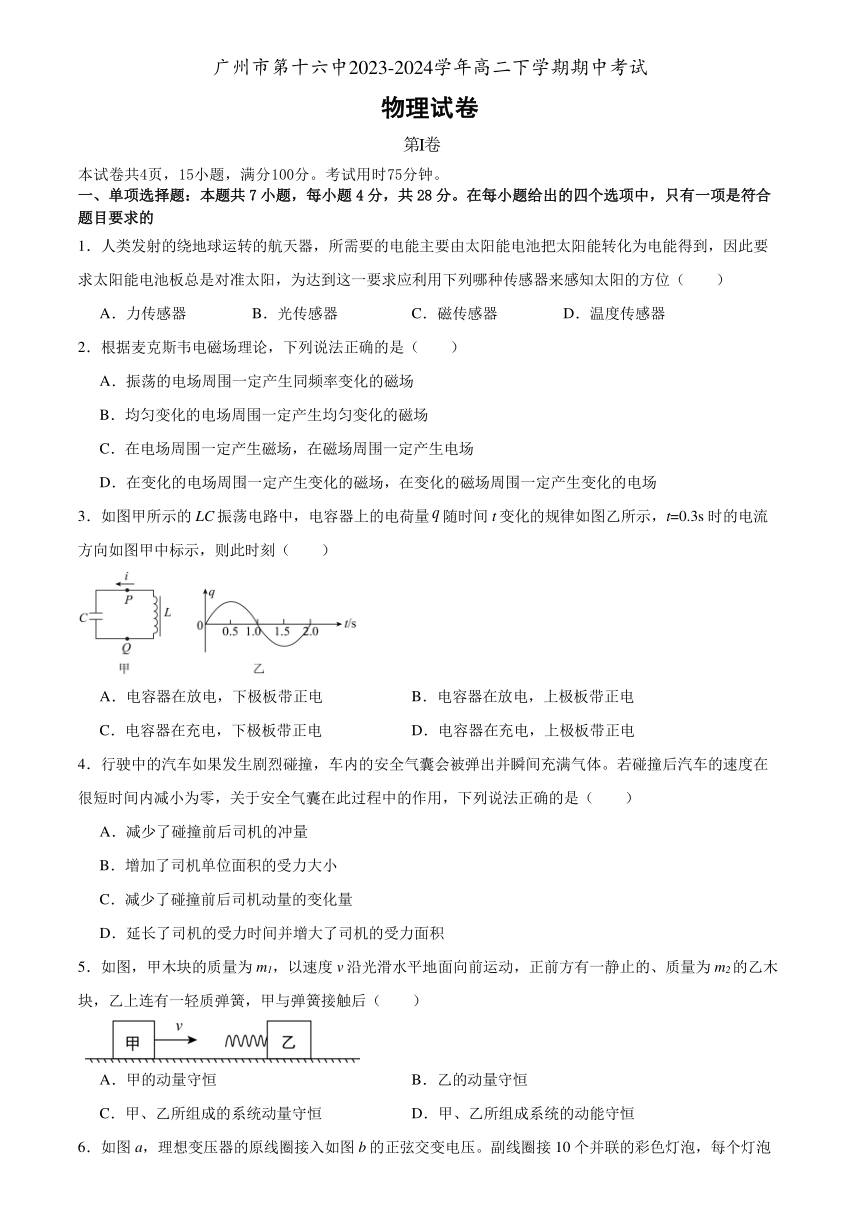 广州市第十六中2023-2024学年高二下学期期中考试
物理试卷
第I卷
本试卷共4页，15小题，满分100分。考试用时75分钟。
一、单项选择题：本题共 7 小题，每小题 4 分，共 28 分。在每小题给出的四个选项中，只有一项是符合
题目要求的
1．人类发射的绕地球运转的航天器，所需要的电能主要由太阳能电池把太阳能转化为电能得到，因此要
求太阳能电池板总是对准太阳，为达到这一要求应利用下列哪种传感器来感知太阳的方位（　　）
A．力传感器 B．光传感器 C．磁传感器 D．温度传感器
2．根据麦克斯韦电磁场理论，下列说法正确的是（　　）
A．振荡的电场周围一定产生同频率变化的磁场
B．均匀变化的电场周围一定产生均匀变化的磁场
C．在电场周围一定产生磁场，在磁场周围一定产生电场
D．在变化的电场周围一定产生变化的磁场，在变化的磁场周围一定产生变化的电场
3．如图甲所示的 LC 振荡电路中，电容器上的电荷量 q 随时间 t 变化的规律如图乙所示，t=0.3s 时的电流
方向如图甲中标示，则此时刻（　　）
i
P
C
L
Q
甲
q
0 0.5 1.0 1.5 2.0 t/s
乙
A．电容器在放电，下极板带正电 B．电容器在放电，上极板带正电
C．电容器在充电，下极板带正电 D．电容器在充电，上极板带正电
4．行驶中的汽车如果发生剧烈碰撞，车内的安全气囊会被弹出并瞬间充满气体。若碰撞后汽车的速度在
很短时间内减小为零，关于安全气囊在此过程中的作用，下列说法正确的是（　　）
A．减少了碰撞前后司机的冲量
B．增加了司机单位面积的受力大小
C．减少了碰撞前后司机动量的变化量
D．延长了司机的受力时间并增大了司机的受力面积
5．如图，甲木块的质量为 m1，以速度 v 沿光滑水平地面向前运动，正前方有一静止的、质量为 m2 的乙木
块，乙上连有一轻质弹簧，甲与弹簧接触后（　　）
甲 v 乙
A．甲的动量守恒 B．乙的动量守恒
C．甲、乙所组成的系统动量守恒 D．甲、乙所组成系统的动能守恒
6．如图 a，理想变压器的原线圈接入如图 b 的正弦交变电压。副线圈接 10 个并联的彩色灯泡，每个灯泡